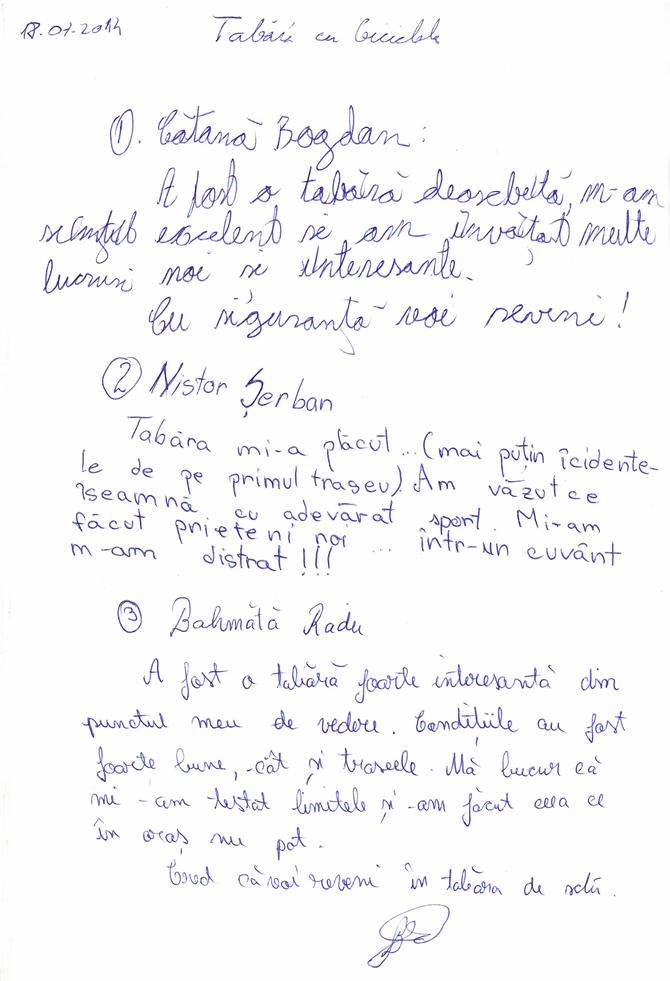 18.07.2014 Tabără cu biciclete
1. Cătană Bogdan:
A fost o tabără deosebită, m-am
simțit excelent și am învățat multe
lucruri noi și interesante.
Cu siguranță voi reveni!
2 Nistor Șerban
Tabăra mi-a plăcut... (mai puțin icidente-
le de pe primul traseu). Am văzut ce
îseamnă cu adevărat sport. Mi-am
făcut prieteni noi ... într-un cuvânt
m-am distrat!!!
3 Bahmătă Radu
A fost o tabără foarte interesantă din
punctul meu de vedere. Condițiile au fost
foarte bune, -cât și traseele. Mă bucur că
mi-am testat limitele și-am făcut ceea ce
în oraș nu pot.
Cred că voi reveni în tabăra de schi.